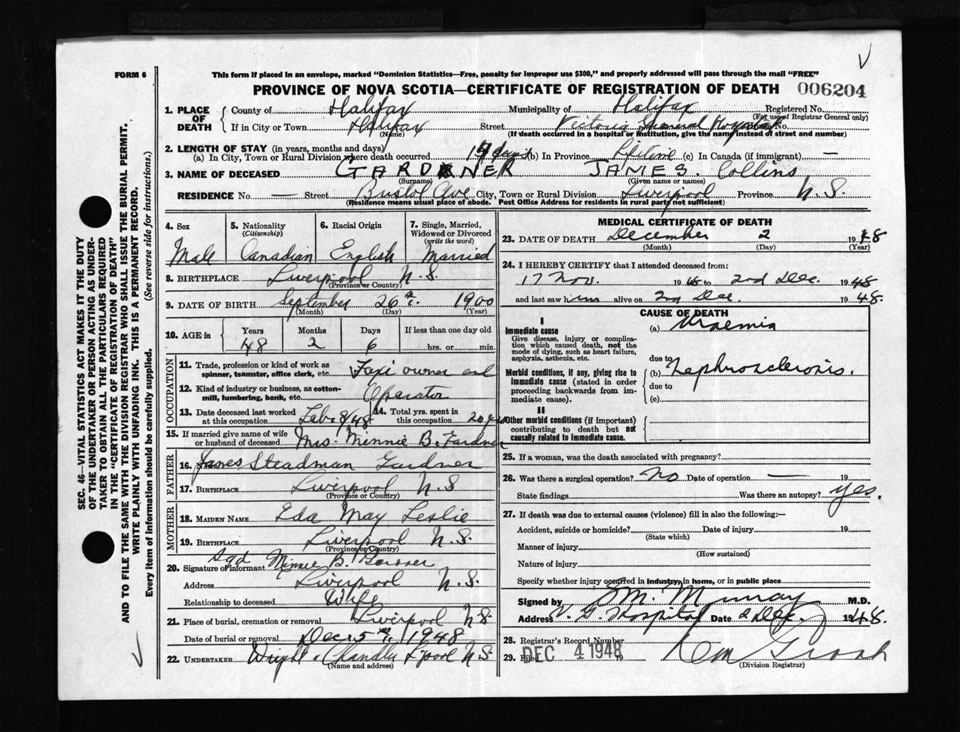 FORM 6
This form if placed in an envelope, marked "Dominion Statistics—Free, penalty for improper use $300," and properly addressed will pass through the mail "FREE"
PROVINCE OF NOVA SCOTIA—CERTIFICATE OF REGISTRATION OF DEATH
006204
1. PLACE OF DEATH
County of Halifax Municipality of Halifax Registered No.
(For use of Registrar General only)
If in City or Town Halifax Street Victoria General Hospital No.
(Name) (If death occurred in a hospital or institution, give the name instead of street and number)
2. LENGTH OF STAY (in years, months and days)
(a) In City, Town or Rural Division where death occurred (b) In Province Lifetime (c) In Canada (if immigrant) —
3. NAME OF DECEASED GARDNER JAMES. Collins
(Surname) (Given name or names)
RESIDENCE No. — Street Bristol Ave City, Town or Rural Division Liverpool Province N.S.
(Residence means usual place of abode. Post Office Address for residents in rural parts not sufficient)
4. Sex 5. Nationality 6. Racial Origin 7. Single, Married, Widowed or Divorced
(Citizenship) (write the word)
Male Canadian English Married
8. BIRTHPLACE Liverpool N.S.
(Province or Country)
9. DATE OF BIRTH September 26th. 1900
(Month) (Day) (Year)
10. AGE in Years Months Days If less than one day old
48 2 6 hrs. or min.
OCCUPATION
11. Trade, profession or kind of work as spinner, teamster, office clerk, etc. Taxi owner and
12. Kind of industry or business, as cotton-mill, lumbering, bank, etc. Operator
13. Date deceased last worked at this occupation 14. Total yrs. spent in this occupation
15. If married give name of wife or husband of deceased Mrs. Minnie B. Gardner
FATHER
16. Name James Steadman Gardner
17. Birthplace Liverpool N.S.
(Province or Country)
MOTHER
18. Maiden Name Eda May Leslie
19. Birthplace Liverpool N.S.
(Province or Country)
20. Signature of informant Sgd Minnie B. Gardner
Address Liverpool N.S.
Relationship to deceased Wife
21. Place of burial, cremation or removal Liverpool N.S.
Date of burial or removal Dec. 5th. 1948
22. UNDERTAKER Wright & Chandler L'pool N.S.
(Name and address)
MEDICAL CERTIFICATE OF DEATH
23. DATE OF DEATH December 2 1948
(Month) (Day) (Year)
24. I HEREBY CERTIFY that I attended deceased from:
17 Nov. 1948 to 2nd Dec. 1948
and last saw him alive on 2nd Dec. 1948.
CAUSE OF DEATH
I
Immediate cause (a) Uraemia
Give disease, injury or complication which caused death, not the mode of dying, such as heart failure, asphyxia, asthenia, etc.
due to
Morbid conditions, if any, giving rise to immediate cause (stated in order proceeding backwards from immediate cause). (b) Nephrosclerosis.
due to
(c)
II
Other morbid conditions (if important) contributing to death but not causally related to immediate cause.
25. If a woman, was the death associated with pregnancy?
26. Was there a surgical operation? No Date of operation — 19
State findings Was there an autopsy? yes.
27. If death was due to external causes (violence) fill in also the following:—
Accident, suicide or homicide? Date of injury 19
(State which)
Manner of injury
(How sustained)
Nature of injury
Specify whether injury occurred in industry, in home, or in public place
Signed by M. Murray M.D.
Address V. G. Hospital Date 2 Dec. 1948.
28. Registrar's Record Number
29. Filed DEC 4 1948
(Division Registrar)
SEC. 46—VITAL STATISTICS ACT MAKES IT THE DUTY
OF THE UNDERTAKER OR PERSON ACTING AS UNDER-
TAKER TO OBTAIN ALL THE PARTICULARS REQUIRED
IN THE "CERTIFICATE OF REGISTRATION OF DEATH"
AND TO FILE THE SAME WITH THE DIVISION REGISTRAR WHO SHALL ISSUE THE BURIAL PERMIT.
WRITE PLAINLY WITH UNFADING INK. THIS IS A PERMANENT RECORD.
Every item of information should be carefully supplied. (See reverse side for instructions.)